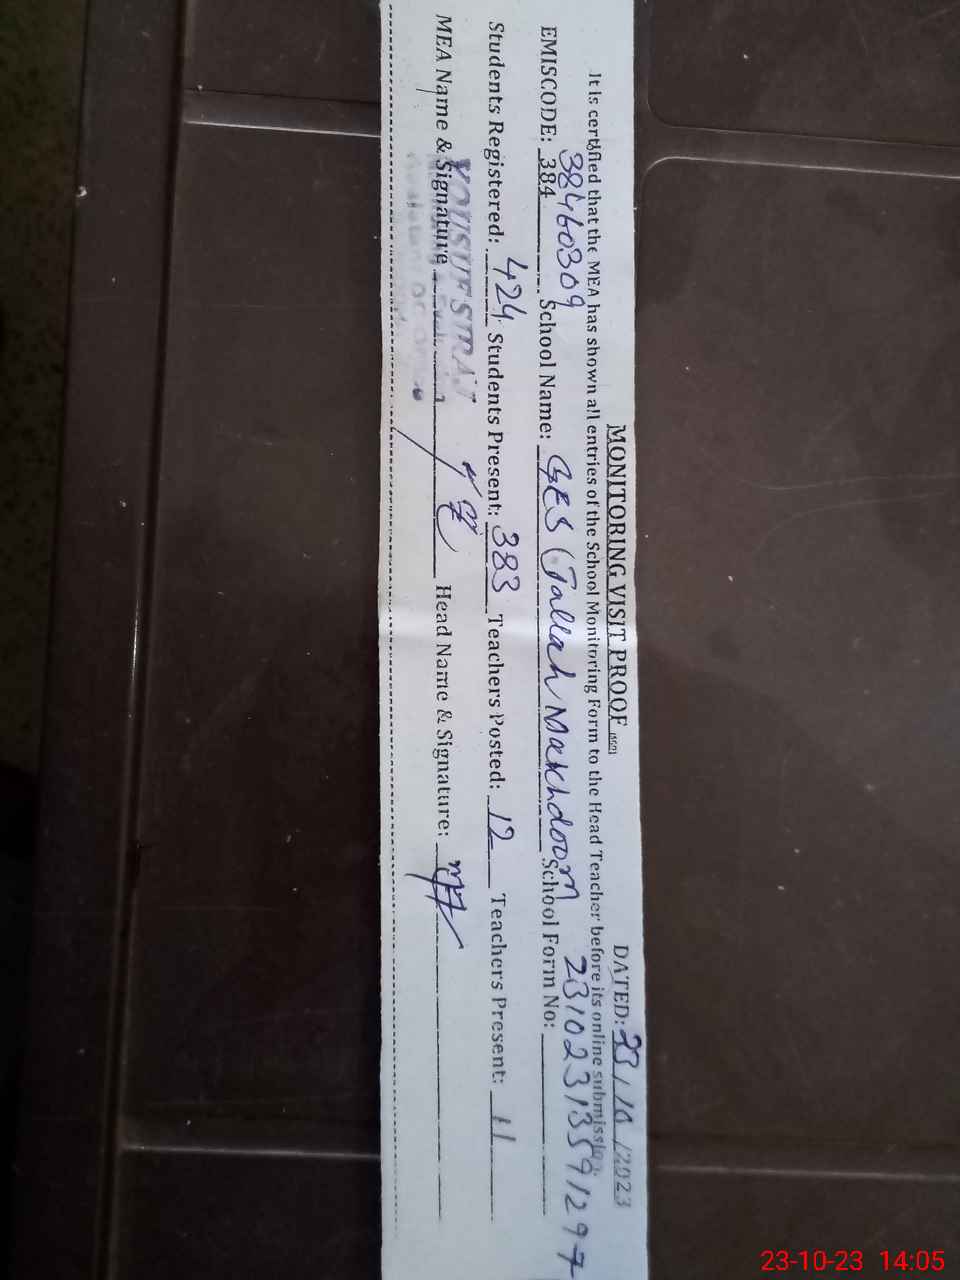 MONITORING VISIT PROOF DATED: 23/10/2023
It is certified that the MEA has shown all entries of the School Monitoring Form to the Head Teacher before its online submission.
EMISCODE: 384 38460309 School Name: GES (Tallah Makhdoom School Form No: 23102313591297
Students Registered: 424 Students Present: 383 Teachers Posted: 12 Teachers Present: 11
MEA Name & Signature YOUSUF SIRAJ Head Name & Signature:
23-10-23 14:05